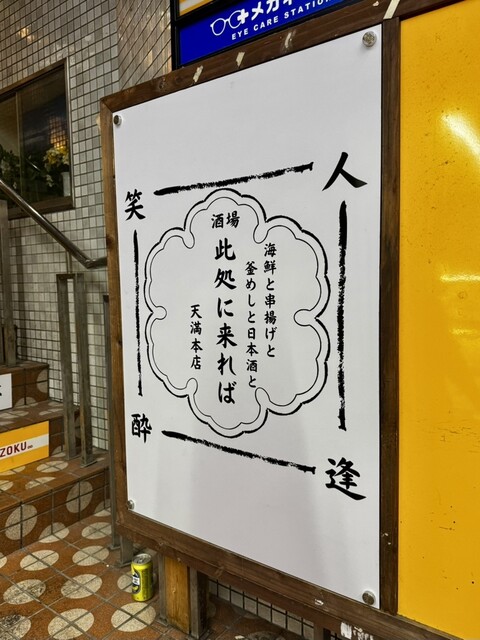 メガネ
EYE CARE STATION
人
逢
酔
笑
海鮮と串揚げと
釜めしと日本酒と
酒場
此処に来れば
天満本店
ZOKU